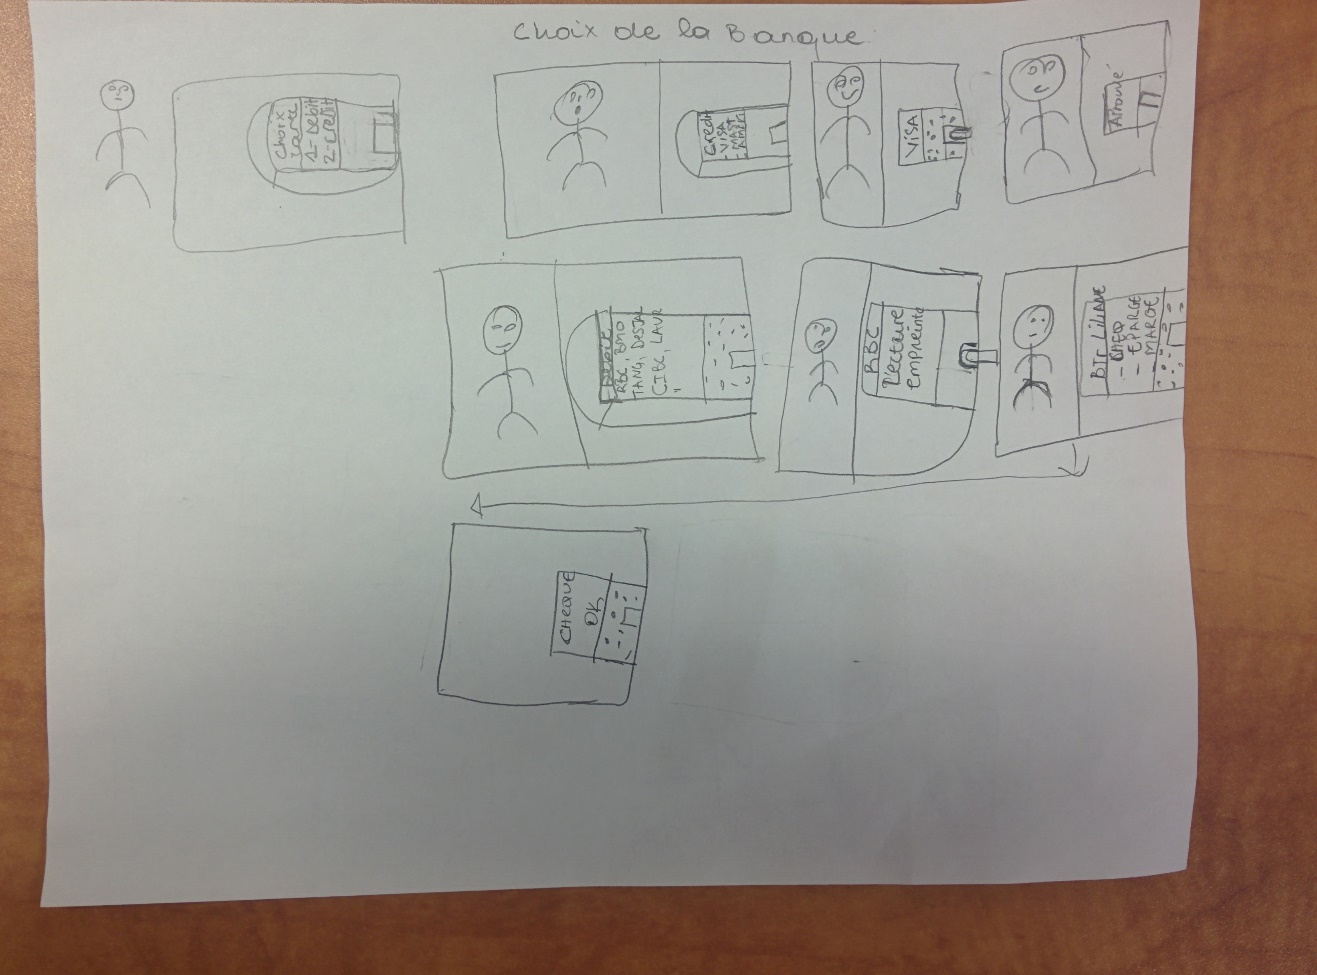 Choix de la Banque
Choix
carte
1- Debit
2- credit
Credit
- VISA
- MAST
- AMER
VISA
Approuvé
Debit
RBC, BMO
TANG, DESJA
CIBC, LAUR
RBC
Lecture
Empreinte
Bjr LILIANE
- CHEQ
- EPARGE
MARGE
CHEQUE
OK